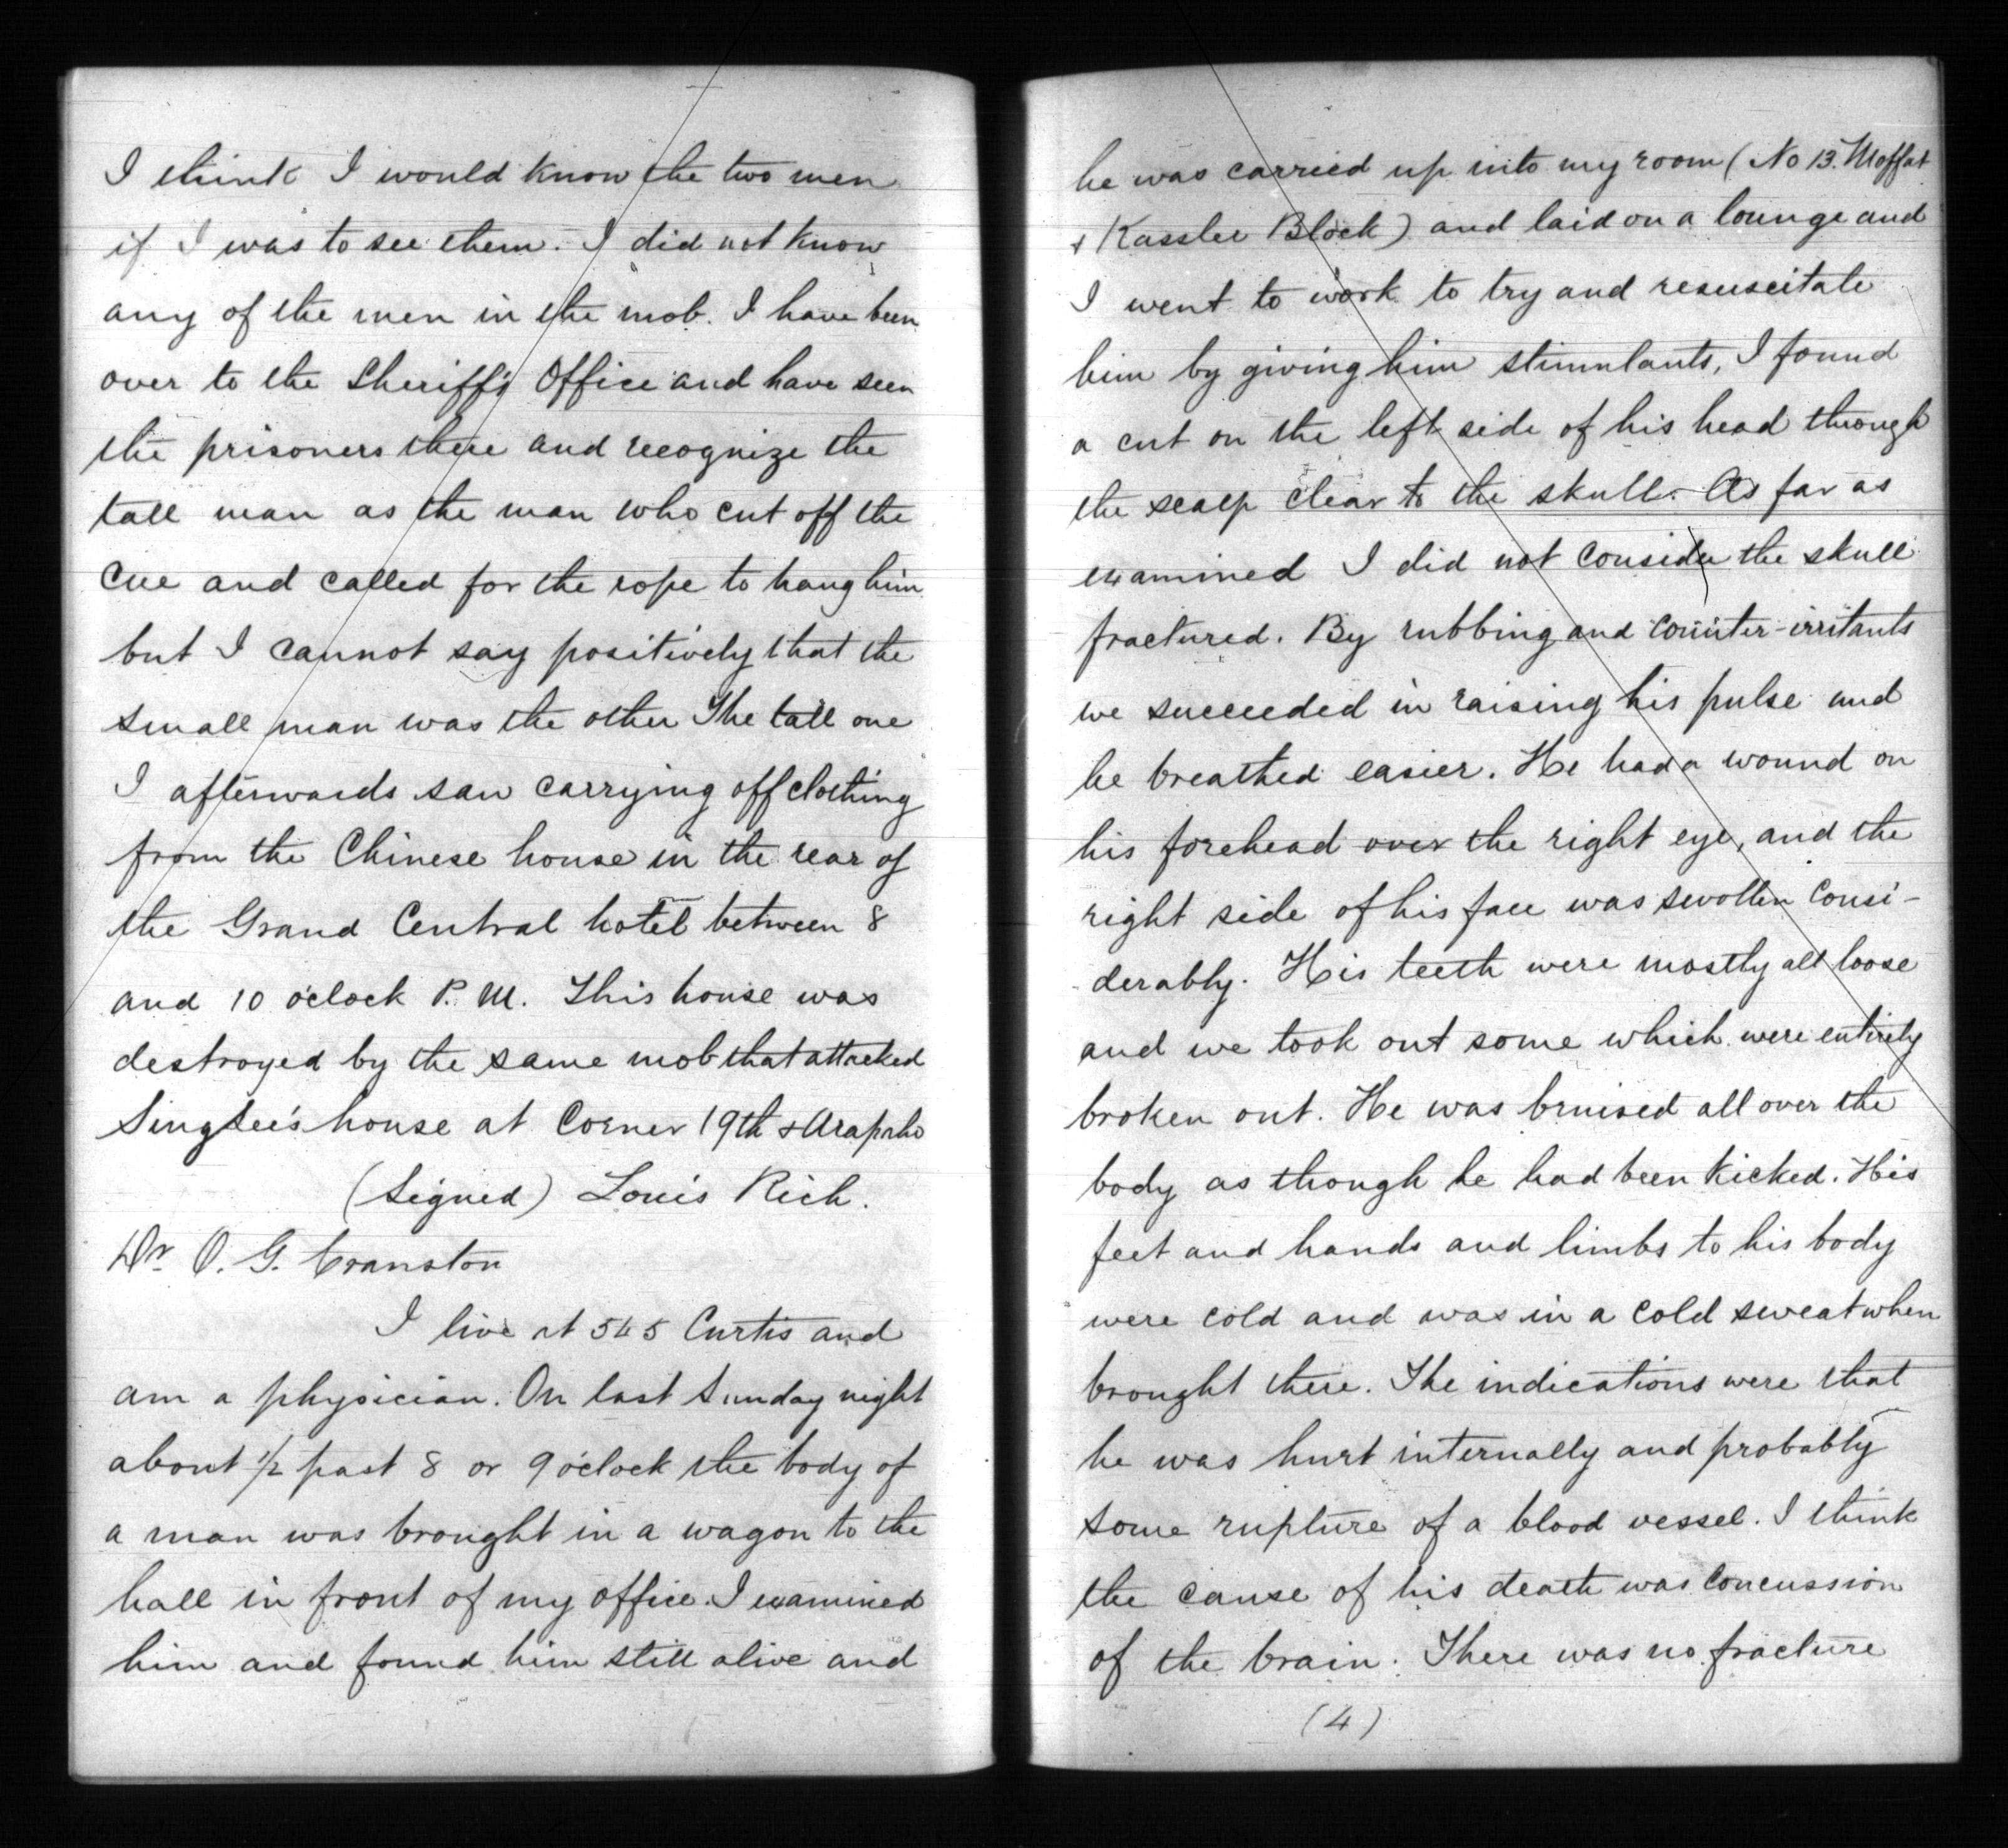 I think I would know the two men
if I was to see them. I did not know
any of the men in the mob. I have been
over to the Sheriff's Office and have seen
the prisoners there and recognize the
tall man as the man who cut off the
cue and called for the rope to hang him
but I cannot say positively that the
small man was the other The tall one
I afterwards saw carrying off clothing
from the Chinese house in the rear of
the Grand Central hotel between 8
and 10 o'clock P. M. This house was
destroyed by the same mob that attacked
Sing Lee's house at Corner 19th & Arapaho
(Signed) Louis Rich.
Dr. O. G. Cranston
I live at 545 Curtis and
am a physician. On last Sunday night
about 1/2 past 8 or 9 o'clock the body of
a man was brought in a wagon to the
hall in front of my office. I examined
him and found him still alive and
he was carried up into my room (No 13. Moffat
& Kassler Block) and laid on a lounge and
I went to work to try and resuscitate
him by giving him stimulants, I found
a cut on the left side of his head through
the scalp clear to the skull. As far as
examined I did not consider the skull
fractured. By rubbing and counter-irritants
we succeeded in raising his pulse and
he breathed easier. He had a wound on
his forehead over the right eye, and the
right side of his face was swollen consi-
derably. His teeth were mostly all loose
and we took out some which were entirely
broken out. He was bruised all over the
body as though he had been kicked. His
feet and hands and limbs to his body
were cold and was in a cold sweat when
brought there. The indications were that
he was hurt internally and probably
some rupture of a blood vessel. I think
the cause of his death was concussion
of the brain. There was no fracture
(4)